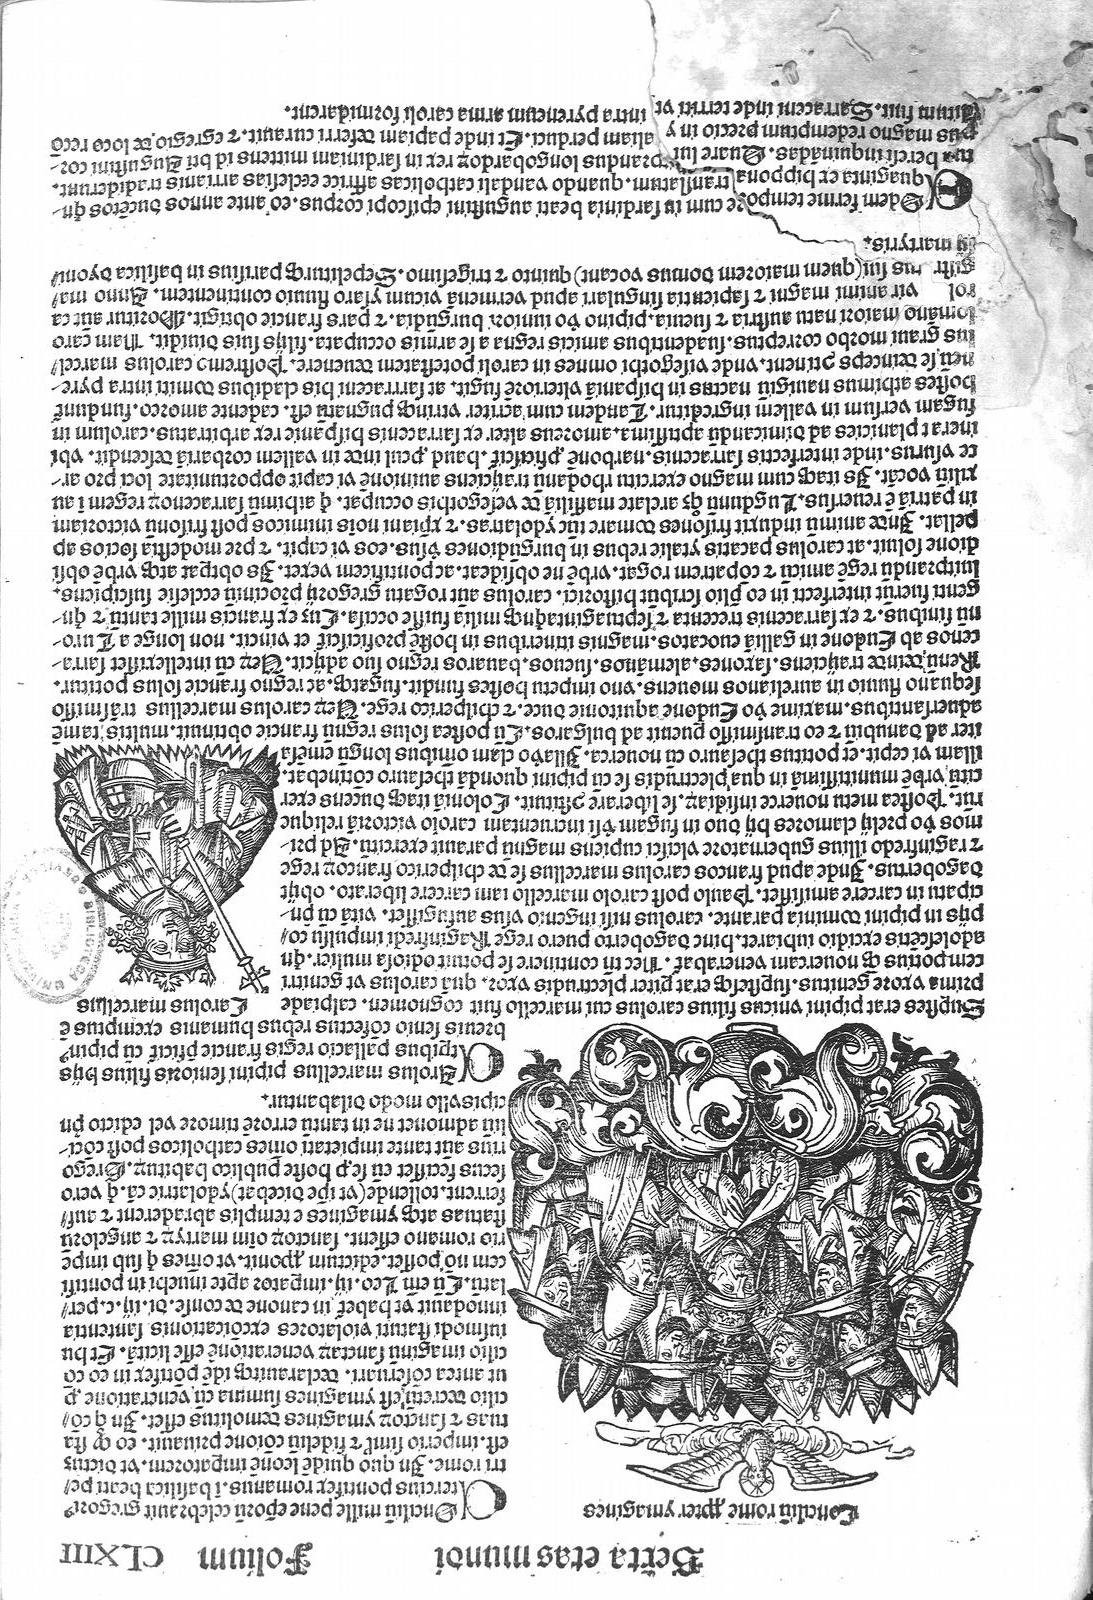 Sexta etas mundi Folium CLXIII
Conciliū rome ꝓpter ymagines
COnciliū mille pene epōꝝ celebrauit gregoriꝰ
tercius pontifex romanus. ī basilica beati pe/
tri rome. In quo quidē leonē imꝑatorem. vt dictus
est. imperio simĺ ⁊ fideliū cōione priuauit. eo ꝙ sta
tuas ⁊ sanctoꝝ ymagines demolitus esset. In q̊ cō/
cilio decreuit vt ymagines summa cū veneratione ꝑ
ut antea cōseruari. declarauitqꝫ idē pōtifex in eo cō
cilio imaginū sanctaꝝ veneratiōnē esse licitā. Et hu
iusmodi statuti violatores excōicationis sententia
innodauit vt habet᷑ in canone de conse. di. iij. c. per/
latū. Cū em̄ Leo. iij. imꝑator apte inuehi in pontifi
cem nō posset. edictum ꝓponit. vt om̄es q̇ sub impe
rio romano essent. sanctoꝝ oīm martyrū ⁊ angeloꝝ
statuas atqꝫ ymagines e templis abraderent ⁊ auf/
ferrent. tollende (vt ipe dicebat) ydolatrie cā. q̇ vero
secus fecisset eū se ꝓ hoste publico habiturū. Grego
rius aūt tante impietati om̄es catholicos post cōci/
liū admonet ne in tantū errorē timore vel edicto pn̄
cipis vllo modo dilabantur.
CArolus marcellus pipini senioris filius hijs
tꝑibus pallacio regis francie p̄ficit᷑ cū pipinꝰ
breuis senio cōfectus rebus humanis exemptus ē
Carolus marcellus
Supstes erat pipini vnicus filius carolus cui marcello fuit cognomen. calpiade
prima vxore genitus. supstesqꝫ erat pariter plectrudis vxor. quā carolus vt genitri
cem potius qꝫ nouercam venerabat᷑. Nec tn̄ continere se potuit odiosa mulier. qn̄
adolescētis excidio inhiaret. hinc dagoberto puero rege Raginfredi impulsu co/
pijs in pipini domum parante. carolus nisi ingenio vlus aufugisset. vitā cū pn̄
cipatu in carcere amisisset. Paulo post carolo marcello iam carcere liberato. obijt
dagobertus. Inde apud francos carolus marcellus se ⁊ chilperico francoꝝ rege
⁊ raginfredo illius gubernatore vlcisci cupiens magnū parauit exercitū. Ad pri-
mos ꝟo prelij clamores hij duo in fugam v̓si incruentam carolo victoriā relique
rūt. Postea metu nouerce insidiaꝝ. se liberare ꝯstituit. Coloniā itaqꝫ ducens exer
citū. vrbē munitissimā in qua plectrudis se cū pipini quonda thesauro cōtinebat.
illam vi cepit. et potitus thesauro cū nouerca. Illa ꝟo clam om̄ibus longū ēmēsa
iter ad danubiū ⁊ eo transmisso ꝑuenit ad bulgaros. Cū postea solus regnū francie obtinuit. multis tamē
aduersantibus. maxime ꝟo Eudone aquitonie duce. ⁊ chilperico rege. Nec̄ carolus marcellus trāsmisso
sequano fluuio in aurelianos mouens. vno impetu hostes fundit. fugatqꝫ. ac regno francie solus potitur.
Renū deinde traijciens. saxones. alemanos. sueuos. bauaros regno suo adijcit. Nec̄ cū intellexisset sarra-
cenos ab Eudone in galliā euocatos. magnis itineribus in hostē proficiscit᷑ et vincit. non longe a Turo-
nū finibus. ⁊ ex sarracenis trecenta ⁊ septuagintaquīqꝫ milia fuisse occisa. Cuȝ ex francis mille tantū ⁊ qn̄-
genti fuerūt interfecti in eo ꝓlio scribūt historici. carolus aūt rogatu gregorij p̄conniū ecclesie suscipiens.
luitprandū regē amicū ⁊ cōpatrem rogat. vrbē ne obsideat. ac pontificem vexet. Is obtꝑat atqꝫ vrbē obsi
dione soluit. at carolus pacatis ytalie rebus in burgūdiones v̓sus. eos vi capit. ⁊ p̄re modestia socios ap
pellat. Inde animū induxit frisones domare tūc ydolatras. ⁊ xp̄iani nois inimicos post frisonū victoriam
in patriā ē reuersus. Lugdunū qꝫ arelate massiliā de vesegothis occupat. q̇ athimū sarracenoꝝ regem ī au
xiliū vocat. Is itaqꝫ cum magno exercitu rhodanū traijciens auinionē vi capit oppoortunitate loci pro ar-
ce vsurus. inde interfectis sarracenis. narbonē ꝓficiscit᷑. haud ꝓcul inde in vallem corbariā descendit. vbi
inerat planicies ad dimicandū aptissima. amoreus alter ex sarracenis hispanie rex arbitratus. carolum in
fugam versum in vallem ingreditur. Tandem cum acriter vtrinqꝫ pugnatū est. cadente amoreo. fundunt᷑
hostes athimus nauigiū nactus in hispaniā vlteriorē fugit. at sarraceni his cladibus domiti intra pyre-
neū se deinceps ꝯtinent. vnde vilegothi omnes in caroli potestatem deuenere. Postremo carolus marcel/
lus graui morbo correptus. suadentibus amicis regna a se armis occupata. filijs suis diuidit. Nam caro
lomano maiori natu austria ⁊ sueuia. pipino ꝟo iuniori burgūdia. ⁊ pars francie obtigit. Moritur aūt ca
rol vir animi magni ⁊ sapientia singulari apud vermeriā vicum ysaro fluuio continentem. Anno ma/
gistr tus sui (quem maiorem domus vocant) quinto ⁊ trigesimo. Sepeliturqꝫ parisius in basilica dyoni/
sij martyris.
EOdem ferme tempore cum in sardinia beati augustini ep̄iscopi corpus. eo ante annos ducētos qn̄-
quaginta ex hippona translatum. quando vandali catholicas affrice ecclesias arrianis tradiderunt.
prandus longobardoꝝ rex in sardiniam mittens id bti Augustini cor-
pus magno redemptum precio in aliam perduci. Et inde papiam deferri curauit. ⁊ egregio de loco reco
ditum fuit. Sarraceni inde territi vt intra pyreneum arma caroli formidarent.